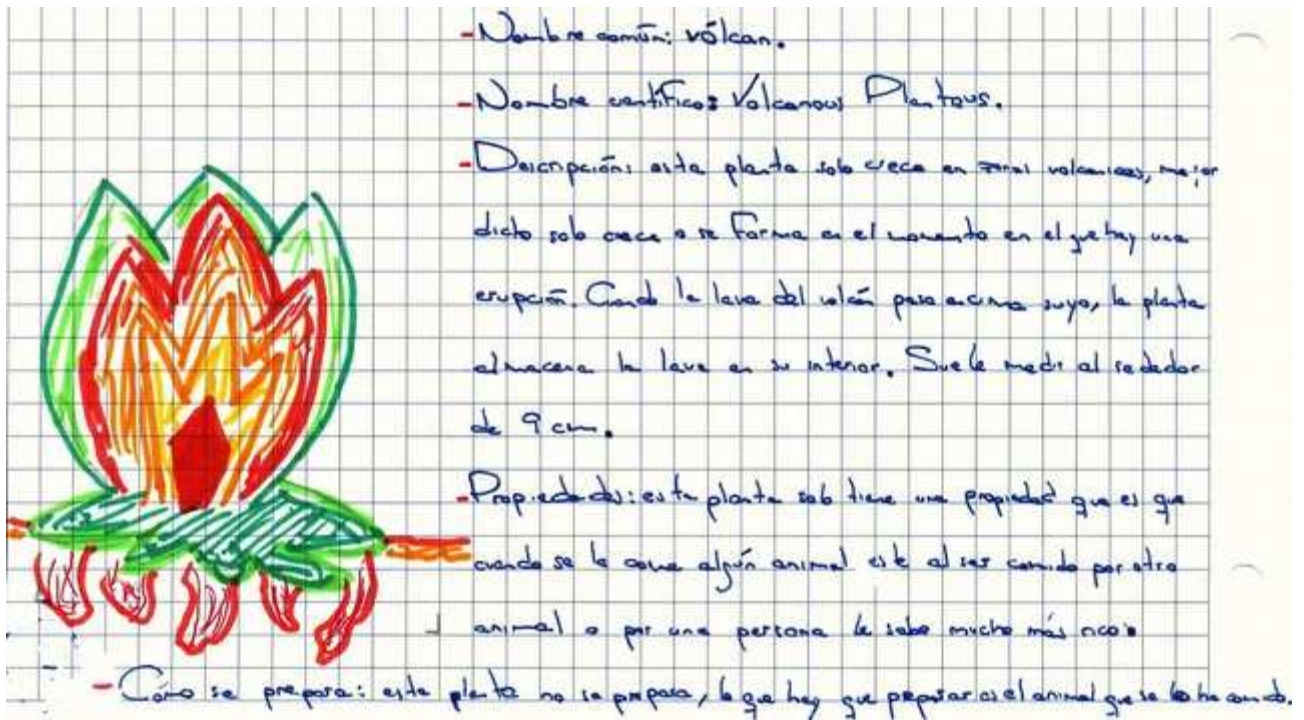 - Nombre común: vólcan.
- Nombre centifico: Volcanous Plantous.
- Descripción: esta planta solo crece en zonas volcanicas, mejor
dicto solo crece o se forma en el momento en el que hay una
erupción. Cuando la lava del volcán pasa encima suyo, la planta
almacena la lava en su interior. Suele medir al rededor
de 9 cm.
- Propiedades: esta planta solo tiene una propiedad que es que
cuando se la come algún animal este al ser comido por otro
animal o por una persona le sabe mucho más rico.
- Cómo se prepara: esta planta no se prepara, lo que hay que preparar es el animal que se la ha comido.